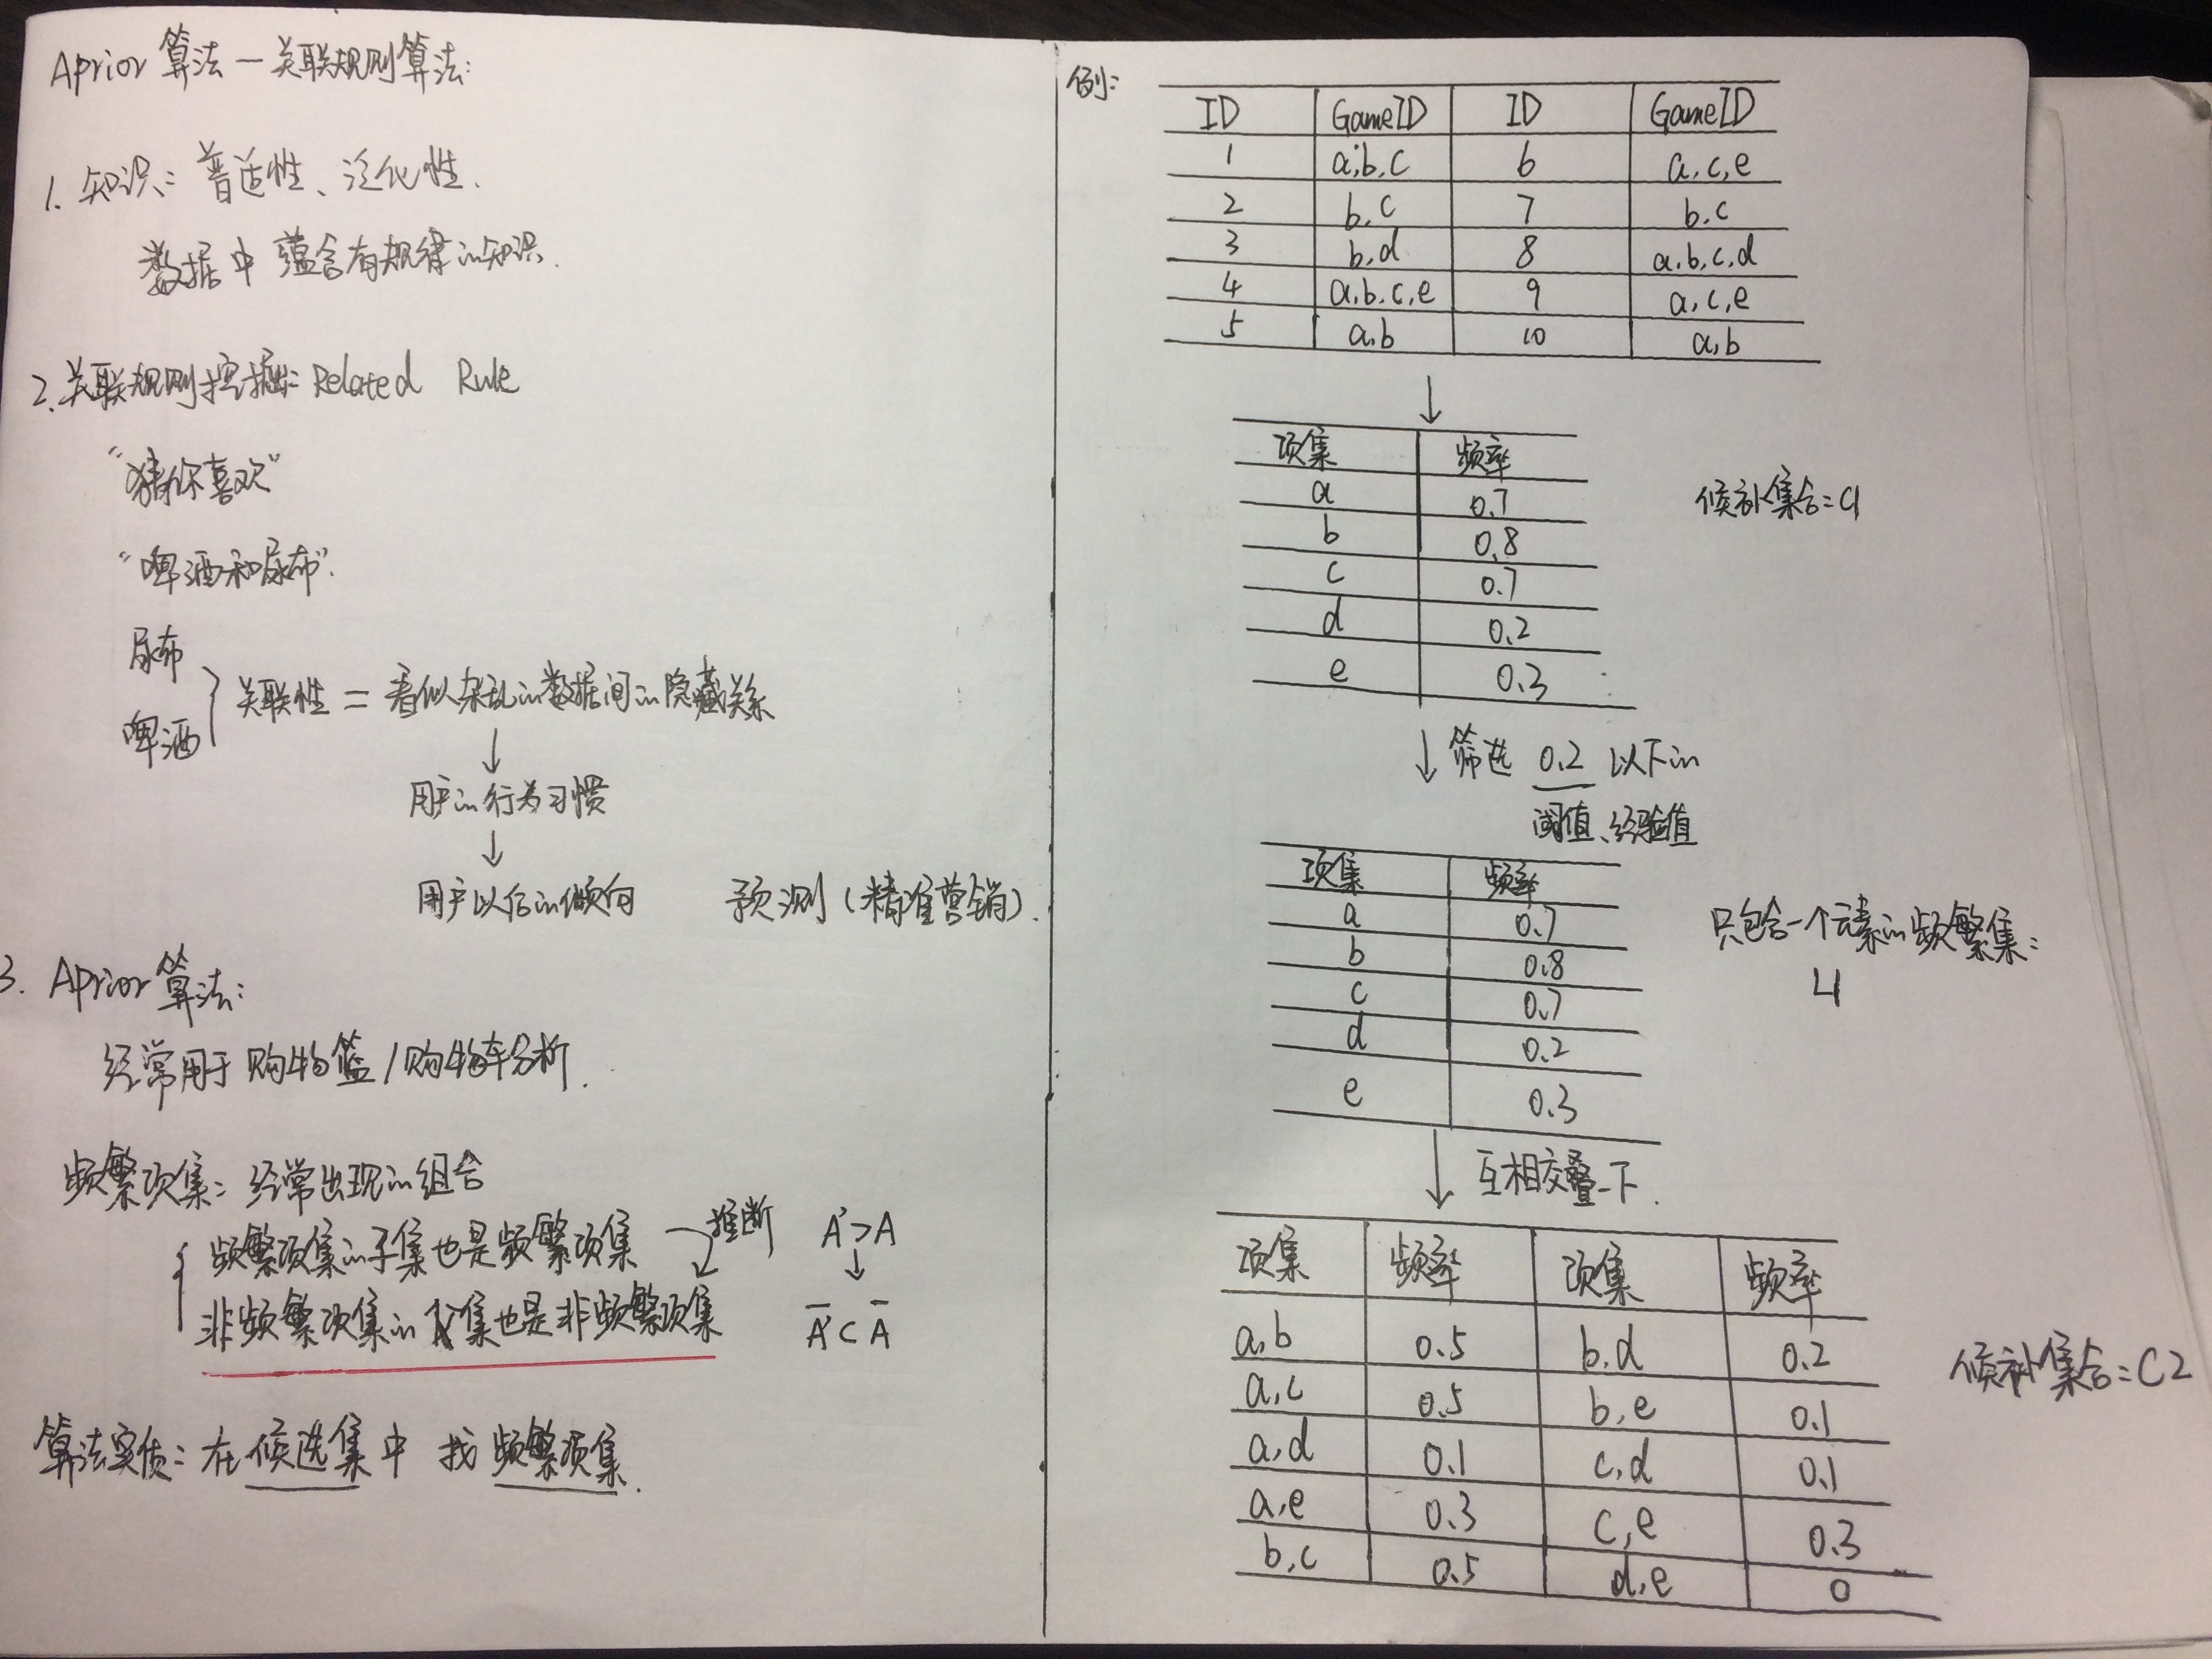 Aprior 算法 — 关联规则算法:
1. 知识: 普适性、泛化性.
数据中 蕴含有规律的知识.
2. 关联规则挖掘: Related Rule
"猜你喜欢"
"啤酒和尿布".
尿布
啤酒
关联性 = 看似杂乱的数据间的隐藏关系
↓
用户的行为习惯
↓
用户以后的倾向 预测 (精准营销).
3. Aprior 算法:
经常用于 购物篮 / 购物车分析.
频繁项集: 经常出现的组合
频繁项集的子集也是频繁项集 推断 A'>A
↓
非频繁项集的 集也是非频繁项集 A'⊂A
算法实质: 在 候选集 中 找 频繁项集.
例:
ID GameID ID GameID
1 a,b,c 6 a,c,e
2 b,c 7 b,c
3 b,d 8 a,b,c,d
4 a,b,c,e 9 a,c,e
5 a,b 10 a,b
↓
项集 频率
a 0.7
b 0.8
c 0.7
d 0.2
e 0.3
候补集合: C1
↓ 筛选 0.2 以下的
阈值、经验值
项集 频率
a 0.7
b 0.8
c 0.7
d 0.2
e 0.3
只包含一个元素的频繁集:
L1
↓ 互相交叠一下.
项集 频率 项集 频率
a,b 0.5 b,d 0.2
a,c 0.5 b,e 0.1
a,d 0.1 c,d 0.1
a,e 0.3 c,e 0.3
b,c 0.5 d,e 0
候补集合: C2